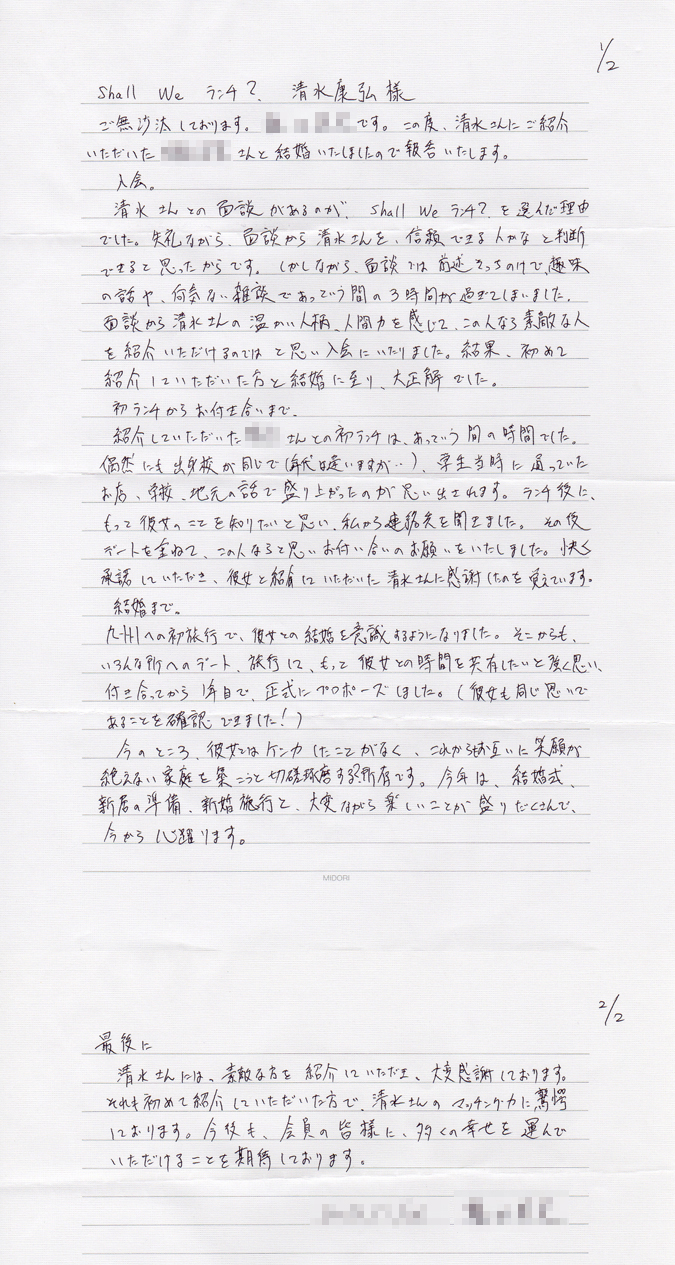 1/2
Shall We ランチ?. 清水康弘様
ご無沙汰しております。 です。この度、清水さんにご紹介
いただいた さんと結婚いたしましたので報告いたします。
入会。
清水さんとの面談があるのが、Shall We ランチ?を選んだ理由
でした。失礼ながら、面談から清水さんを、信頼できる人かなと判断
できると思ったからです。しかしながら、面談では前述そっちのけで、趣味
の話や、何気ない雑談であっていう間の3時間が過ぎてしまいました。
面談から清水さんの温かい人柄、人間力を感じて、この人なら素敵な人
を紹介いただけるのではと思い入会にいたりました。結果、初めて
紹介していただいた方と結婚に至り、大正解でした。
初ランチからお付き合いまで。
紹介していただいた さんとの初ランチは、あっていう間の時間でした。
偶然にも出身校が同じで(年代は違いますが…)、学生当時に通っていた
お店、学校、地元の話で盛り上がったのが思い出されます。ランチ後に、
もって彼女のことを知りたいと思い、私から連絡先を聞きました。その後
デートを重ねて、この人ならと思いお付い合いのお願いをいたしました。快く
承諾していただき、彼女と紹介していただいた清水さんに感謝したのを覚えています。
結婚まで。
九州への初旅行で、彼女との結婚を意識するようになりました。そこからも、
いろんな所へのデート、旅行して、もって彼女との時間を共有したいと強く思い、
付き合ってから1年目で、正式にプロポーズしました。(彼女も同じ思いで
あることを確認できました!)
今のところ、彼女とはケンカしたことがなく、これからもお互いに笑顔が
絶えない家庭を築こうと切磋琢磨する所存です。今年は、結婚式、
新居の準備、新婚旅行と、大変ながら楽しいことが盛りだくさんで、
今から心躍ります。
MIDORI
2/2
最後に
清水さんには、素敵な方を紹介していただき、大変感謝しております。
それも初めて紹介していただいた方で、清水さんのマッチング力に驚愕
しております。今後も、会員の皆様に、多くの幸せを運んで
いただけることを期待しております。